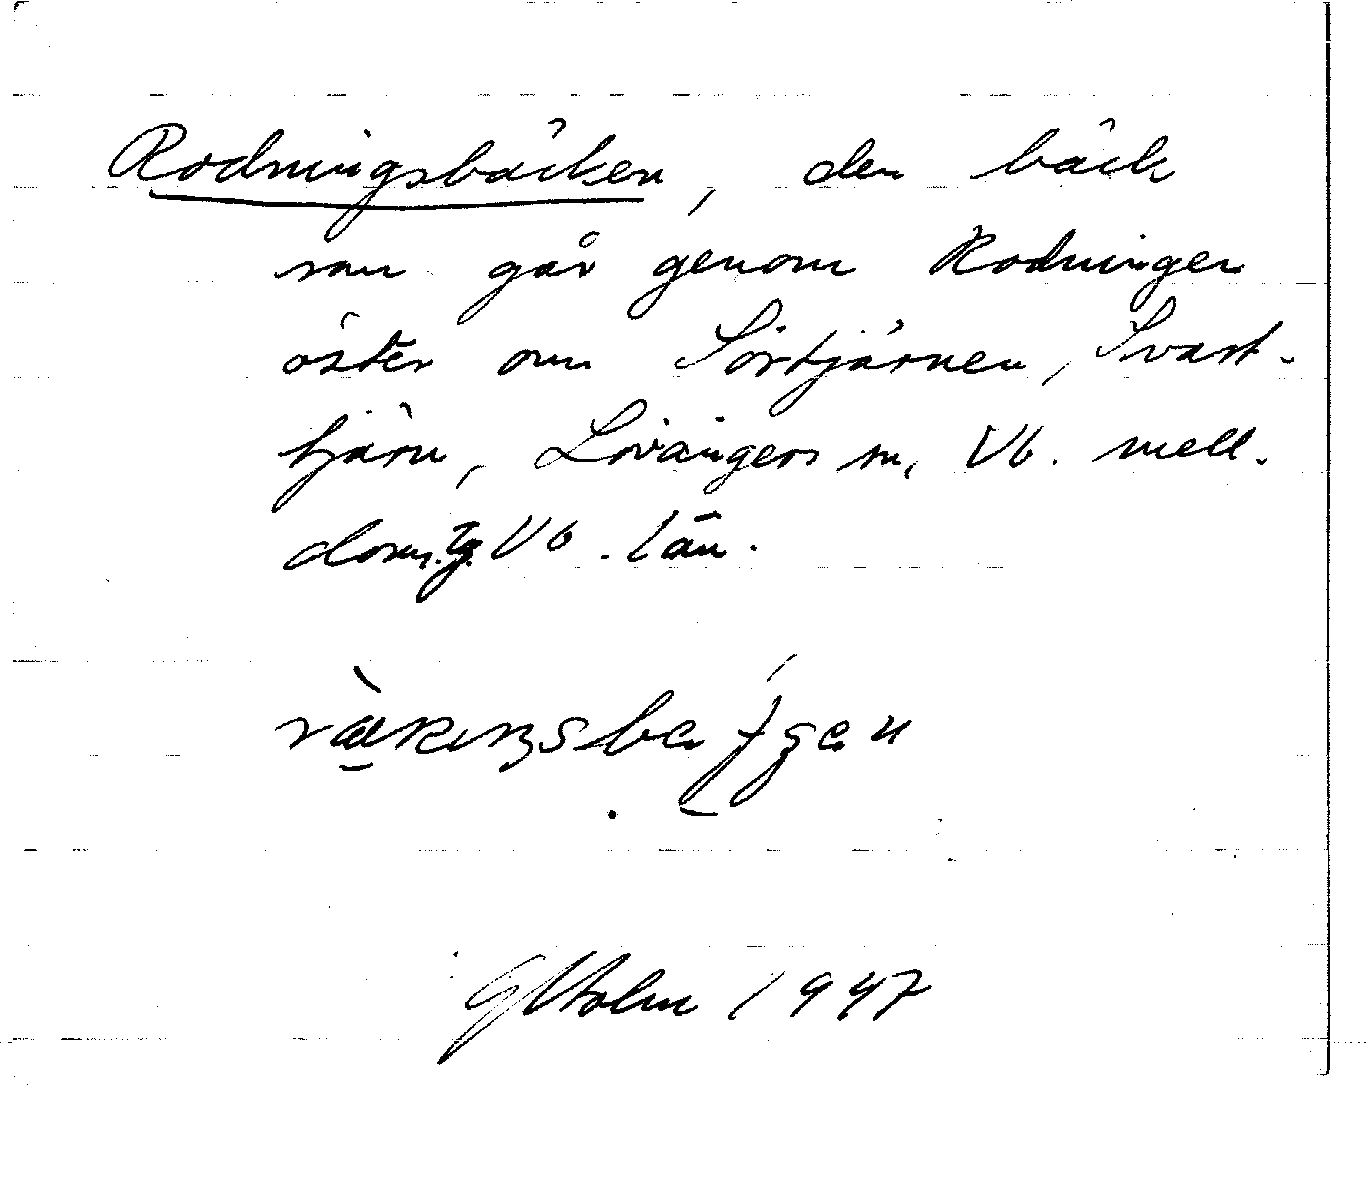 Rodningsbäcken, den bäck
som går genom Rodningen
öster om Sörtjärnen, Svart-
tjärn, Lövångers sn, Vb. mell.
doms. tg. Vb. län.
G Holm 1947